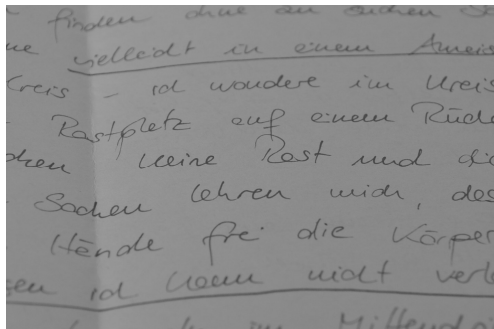 finden ohne zu suchen Se
ne vielleicht in einem Ameis
Kreis – ich wandere im Kreis
Rastplatz auf einem Rück
chen keine Rast und di
Sachen lehren mich, das
Hände frei die Körper
sen ich kann nicht verl
im Mittendri